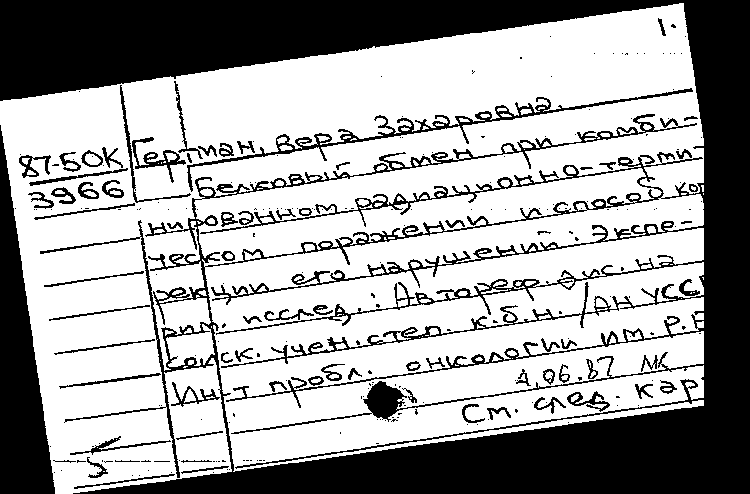 1.
87-50К
3966
Гертман, Вера Захаровна.
Белковый обмен при комби-
нированном радиационно-терми-
ческом поражении и способ кор
рекции его нарушений: Экспе-
рим. исслед.: Автореф. дис. на
соиск. учен. степ. к.б.н. / АН УССР
Ин-т пробл. онкологии им. Р.Е
4.06.87 МК.
См. след. кар
5